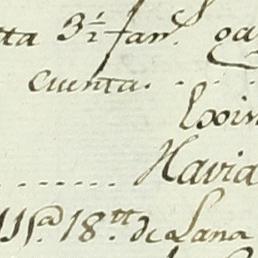 tta 3½ fan.s ga
cuenta. . .
Exim
Havia
11s.a 18.tt de Lana